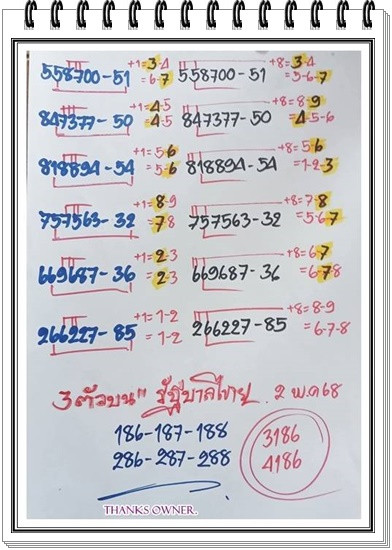 +1=3-4 +8=3-4
558700-51 =6-7 558700-51 =5-6-7
+1=4-5 +8=8-9
847377-50 =4-5 847377-50 =4-5-6
+1=5-6 +8=5-6
818894-54 =5-6 818894-54 =1-2-3
+1=8-9 +8=7-8
757563-32 =7-8 757563-32 =5-6-7
+1=2-3 +8=6-7
669687-36 =2-3 669687-36 =6-7-8
+1=1-2 +8=8-9
266227-85 =1-2 266227-85 =6-7-8
3ตัวบน" รัฐบาลไทย. 2 พ.ค 68
186-187-188 3186
286-287-288 4186
THANKS OWNER.